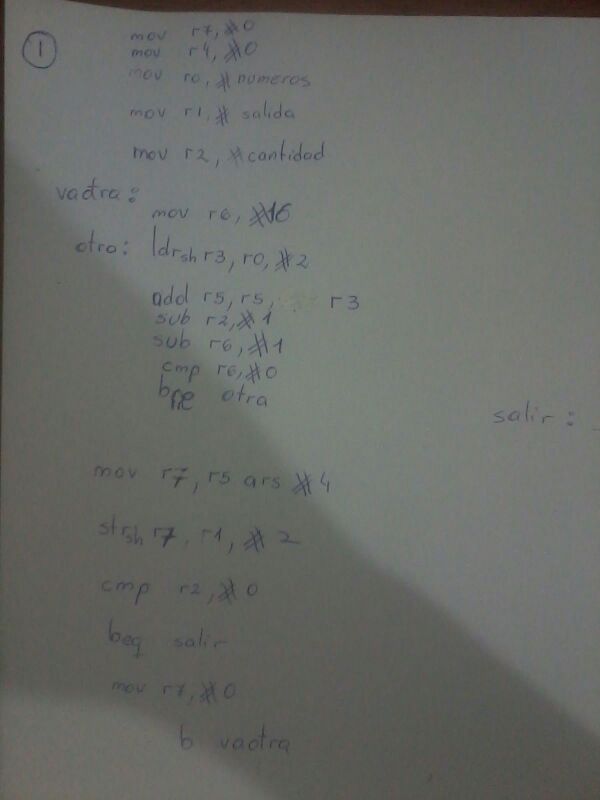 1
mov r7, #0
mov r4, #0
mov r0, #numeros
mov r1, # salida
mov r2, #cantidad
vaotra:
mov r6, #16
otro: ldrsh r3, r0, #2
add r5, r5, r3
sub r2, #1
sub r6, #1
cmp r6, #0
bne otra
salir:
mov r7, r5 ars #4
strsh r7, r1, # 2
cmp r2, #0
beq salir
mov r7, #0
b vaotra